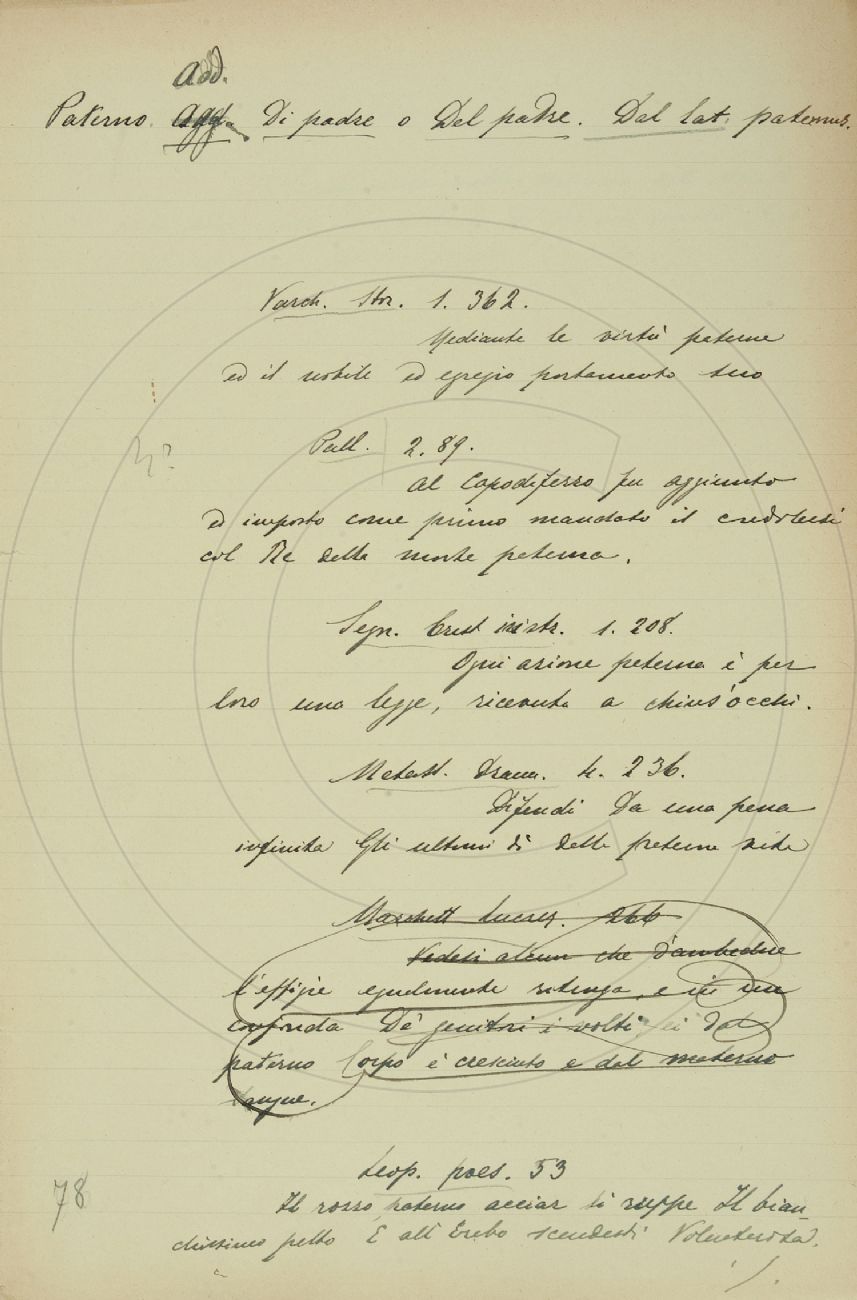 Add.
Paterno. Agg. Di padre o Del padre. Dal lat. paternus.
Varch. Stor. 1. 362.
Mediante le virtù paterne
ed il nobile ed egregio portamento suo
Pall. 2. 89.
Al Capodiferro fu aggiunto
ed imposto come primo mandato il condolersi
col Re della morte paterna.
Segn. Crist. instr. 1. 208.
Ogni azione paterna è per
loro una legge, ricevuta a chius'occhi.
Metast. Dram. 4. 236.
Difendi Da una pena
infinita Gli ultimi dì della paterna vita
Marchett. Lucrez. 266
Vedesi alcun che d'ambedue
l'effigie egualmente ritenga, e in un
confonda De' genitori i volti, ei dal
paterno Corpo è cresciuto e dal materno
Sangue.
Leop. poes. 53
Il rosso paterno acciar ti ruppe Il bian-
chissimo petto E all'Erebo scendesti Volenterosa.
78